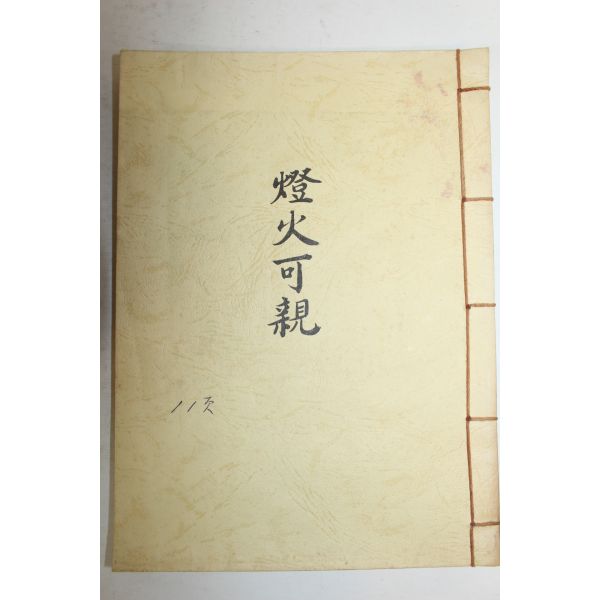 燈火可親
11页